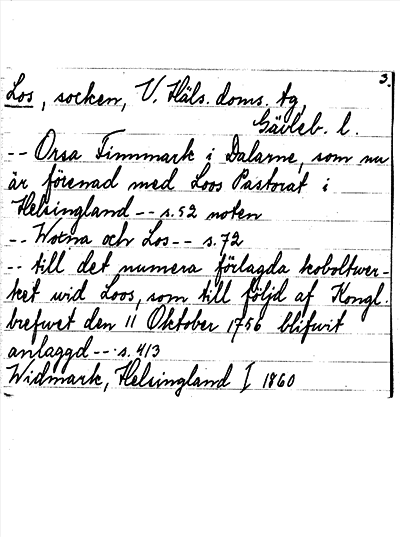 3.
Los, socken, V. Häls. doms. tg,
Gävleb. l.
-- Orsa Finnmark i Dalarne, som nu
är förenad med Loos Pastorat i
Helsingland -- s. 52 noten
-- Woxna och Los -- s. 72
-- till det numera förlagda koboltwer-
ket wid Loos, som till följd af Kongl.
brefwet den 11 Oktober 1756 blifwit
anlaggd -- s. 413
Widmark, Helsingland I 1860